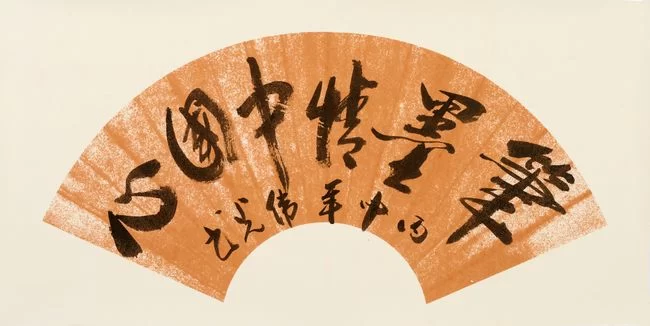 筆墨情中國心
丙申年伟光书